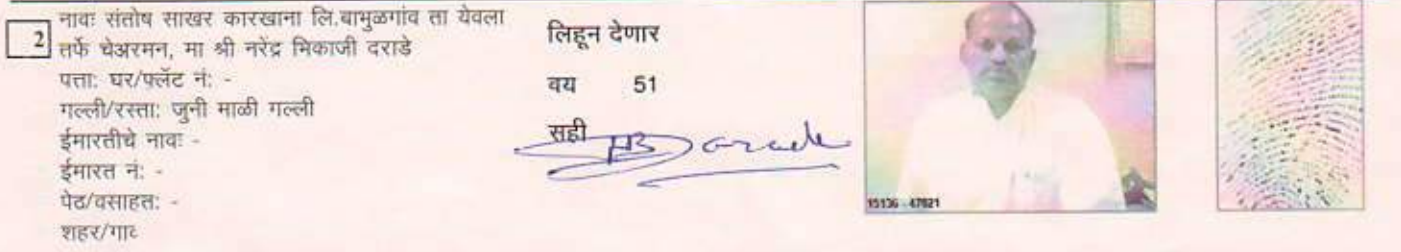 2
नावः संतोष साखर कारखाना लि.बाभुळगांव ता येवला
तर्फे चेअरमन, मा श्री नरेंद्र भिकाजी दराडे
पत्ता: घर/फ्लॅट नं: -
गल्ली/रस्ता: जुनी माळी गल्ली
ईमारतीचे नावः -
ईमारत नं: -
पेठ/वसाहत: -
शहर/गाव
लिहून देणार
वय 51
सही
15136 - 47821